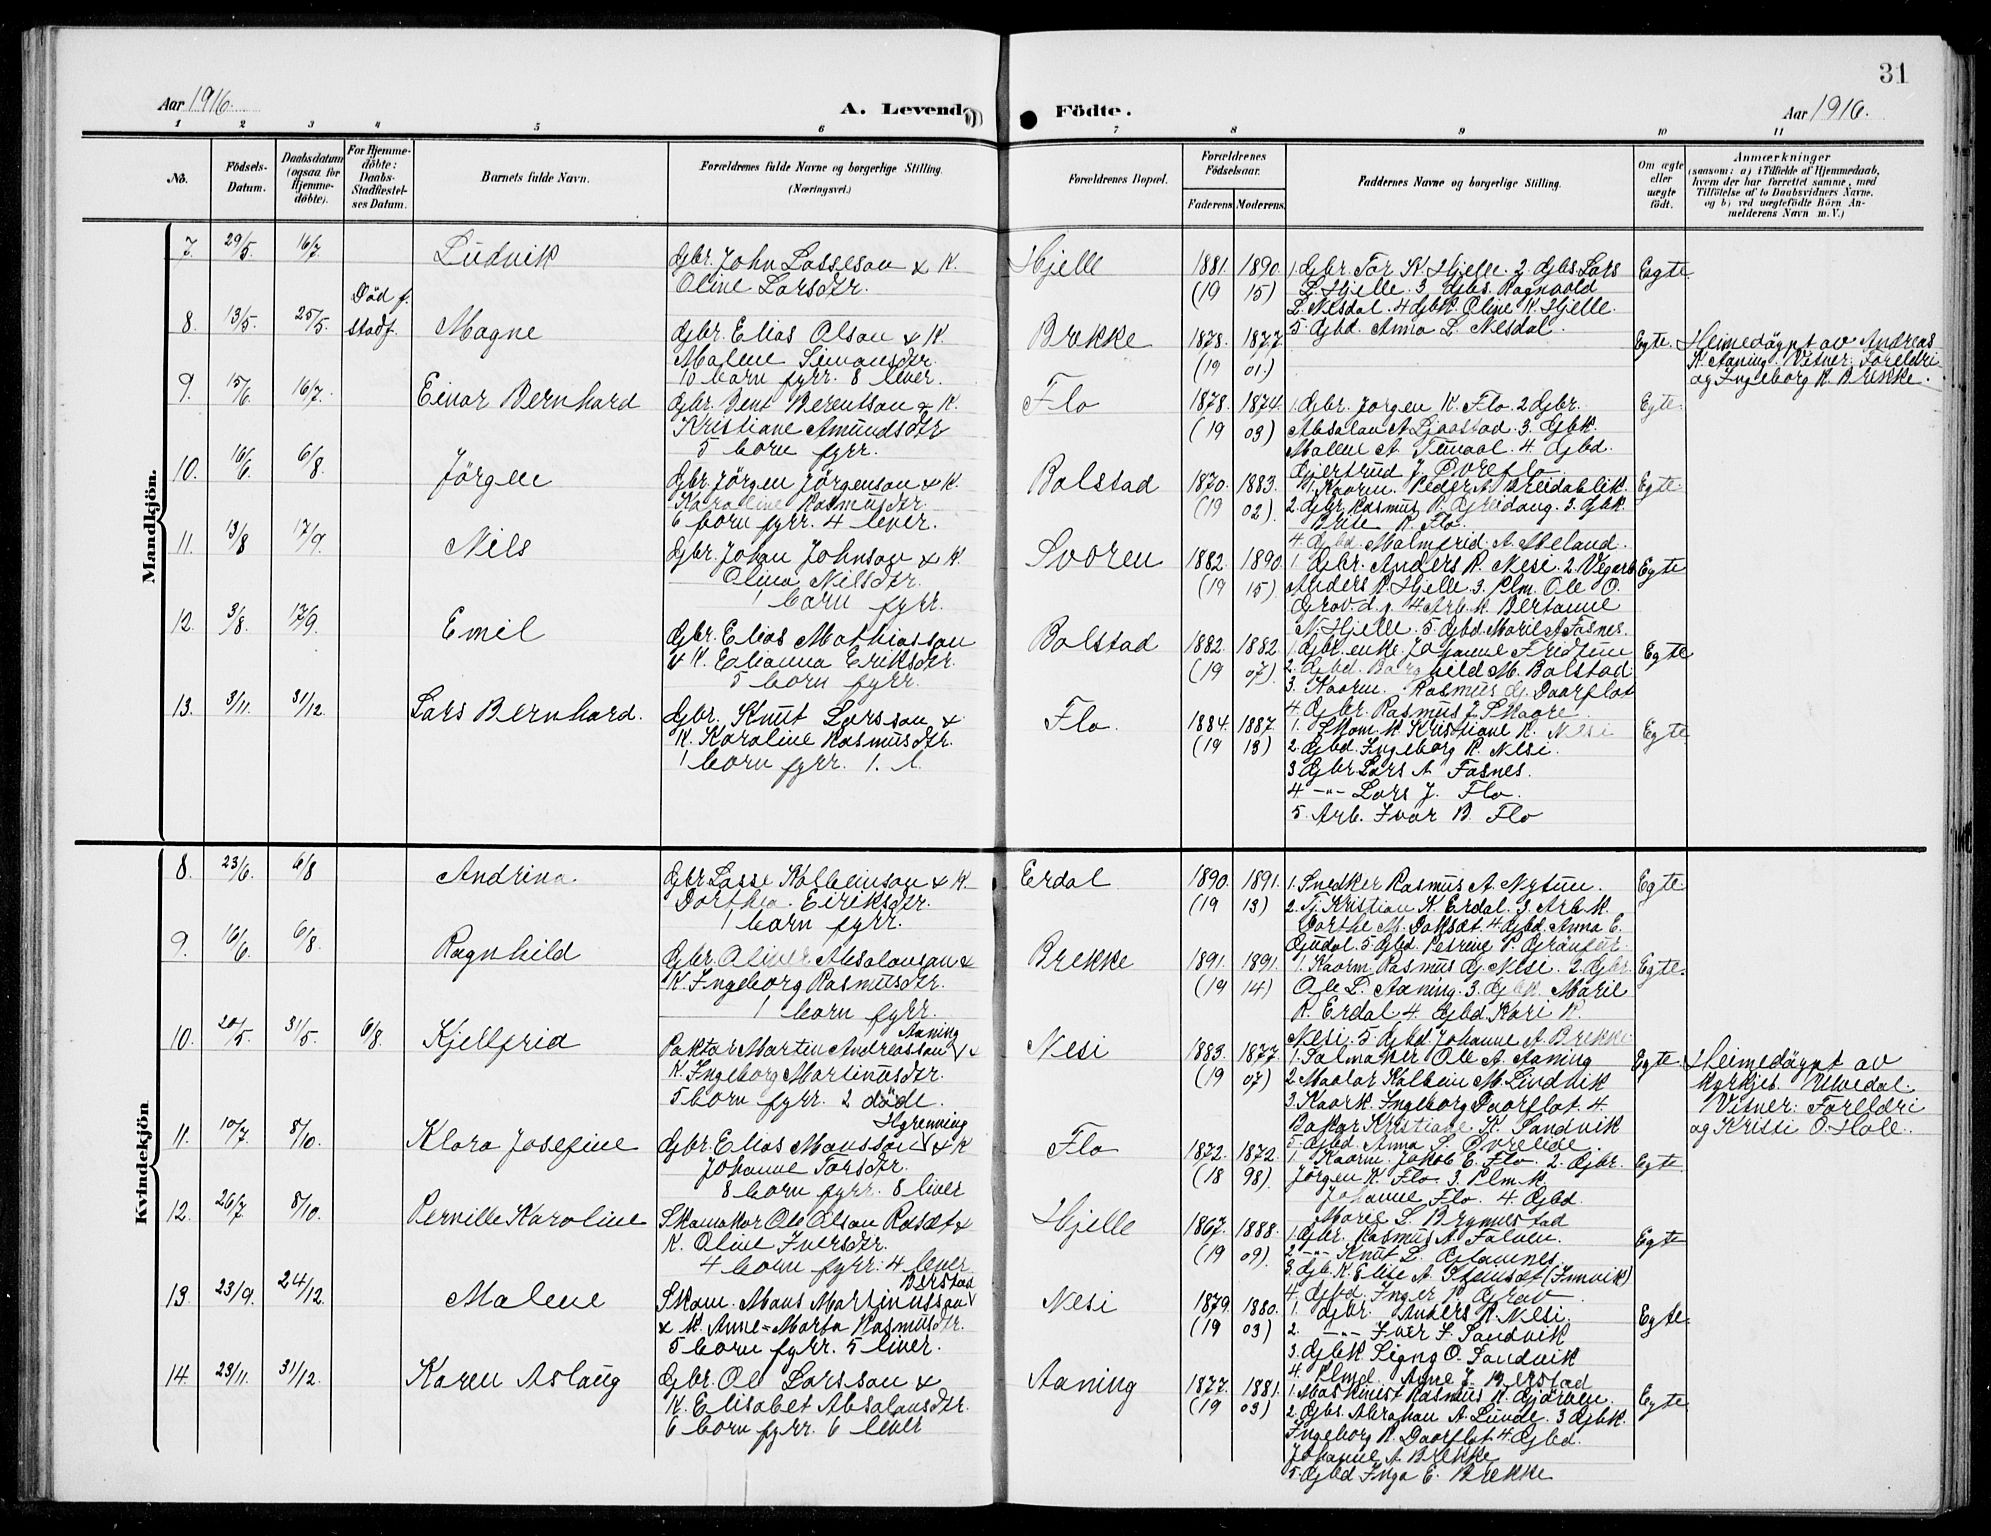 31
Aar 1916.
A. Levende
Födte.
Aar 1916.
1 2 3 4 5 6 7 8 9 10 11
No.
Födsels-Datum.
Daabsdatum (ogsaa for Hjemme-döbte).
For Hjemme-döbte: Daabs-Stadfæstel-ses Datum.
Barnets fulde Navn.
Forældrenes fulde Navne og borgerlige Stilling. (Næringsvei.)
Forældrenes Bopæl.
Forældrenes Födselsaar.
Faderens. Moderens.
Faddernes Navne og borgerlige Stilling.
Om ægte eller uægte födt.
Anmærkninger
(saasom: a) i Tilfælde af Hjemmedaab, hvem der har forrettet samme, med Tilföielse af to Daabsvidners Navne. og b) ved uægtefödte Börn An-melderens Navn m. V.)
Mandkjön.
7. 29/5 16/7. Ludvik
Gbr. John Lasseson & K.
Oline Larsdtr.
Hjelle 1881. 1890.
(19 15)
1. Gbr. Tor K. Hjelle. 2 Gbs. Lars
L. Hjelle. 3 Gbs. Ragnvald
L. Nesdal. 4 Gbk Oline K. Hjelle.
5. Gbd. Anna L. Nesdal.
Egte.
8. 13/5. 25/5. Död f. stadf. Magne
Gbr. Elias Olson & K.
Malene Simonsdtr.
10 born fyrr. 8 liver.
Brekke 1878. 1877.
(19 01.)
Egte.
Heimedöypt av Andreas
K. Aaning. Vitner: Foreldri
og Ingeborg R. Brekke.
9. 15/6. 16/7. Einar Bernhard
Gbr. Bent Berentson & K.
Kristiane Amundsdtr
5 born fyrr.
Flo 1878. 1874.
(19 03)
1. Gbr. Jorgen K. Flo. 2 Gbr.
Absalon A. 3. Gbk.
Malene A. 4. Gbd.
Gjertrud J. Övreflo.
Egte.
10. 16/6 6/8. Jörgen
Gbr. Jörgen Jörgenson & K.
Karoline Rasmusdtr.
6 born fyrr. 4 lever.
Bolstad 1870. 1883.
(19 02).
1. Kaarm. Peder A Breidablik.
2. Gbr. Rasmus R. Gjeidang. 3. Gbk.
Brite K. Flo.
4. Gbd. Malmfrid A. Meland.
Egte.
11. 13/8 17/9. Nils
Gbr. Johan Johnson & K.
Olina Nilsdtr.
1 born fyrr.
Svoren 1882. 1890.
(19 15)
1. Gbr. Anders R. Nesi. 2. Vegarb
Anders R. Hjelle. 3. Plm. Ole O.
Grov. d. y. 4 Arb. k. Bertanne
N. Hjelle. 5. Gbd. Marie A Fosnes.
Egte
12. 3/8. 17/9. Emil
Gbr. Elias Mathiasson
& K. Edianna Eriksdtr.
5 born fyrr.
Bolstad 1882. 1882.
(19 07).
1. Gbr. enke. Johanne Fridtun
2. Gbd. Borghild M. Bolstad.
3. Kaarm. Rasmus G. Daarflot
4. Gbr. Rasmus J. Skaare.
Egte
13. 3/11. 31/12. Lars Bernhard.
Gbr. Knut Larsson &
K. Karoline Rasmusdtr.
1 born fyrr. 1. l.
Flo. 1884. 1887.
(19 13)
1. Skom. K. Kristiane R. Nesi
2. Gbd. Ingeborg R. Nesi.
3 Gbr. Lars A Fosnes.
4 -"- Lars J. Flo.
5. Arb. Ivar B. Flo
Egte
Kvindekjön
8. 23/6. 6/8 Andrina.
Gbr. Lasse Kolbeinson & K.
Dorthea Eiriksdtr.
1 born fyrr.
Erdal 1890. 1891.
(19 13)
1. Snedker Rasmus A. Nytun.
2. Tj. Kristian K. Erdal. 3. Arb. k.
Dorthe M. Doksæt. 4 Gbd. Anna E.
Gjudal. 5 Gbd. Petrine P.
Egte.
9. 16/6 6/8. Ragnhild
Gbr. Oliver Absalonson &
K. Ingeborg Rasmusdtr.
1 born fyrr.
Brekke 1891. 1891.
(19 14)
1. Kaarm. Rasmus G. Nesi. 2. Gbr.
Ole L. Aaning. 3. Gbk. Marie
R. Erdal. 4. Gbd. Kari K.
Nesi. 5. Gbd. Johanne A. Brekke
Egte.
10. 20/5. 31/5. 6/8. Kjellfrid
Aaning
Paktar Martin Andreasson &
K. Ingeborg Martinusdtr.
5 born fyrr. 2 döde.
Nesi 1883. 1877.
(19 07)
1. Salmaker Ole A. Aaning
2. Maalar Kolbein M. Lindvik
3. Kaark. Ingeborg Daarflot. 4.
Bakar Kristiane K. Sandvik
5. Gbd. Anna S. Övrelide.
Egte.
Heimedöypt av
kyrkjes. Ulvedal.
Vitner: Foreldri
og Kristi O. Hole.
11. 10/7. 8/10. Klara Josefine
Hgrenning
Gbr. Elias Monsson & K
Johanne Torsdtr.
8 born fyrr. 8 liver
Flo 1872. 1872.
(18 98).
1. Kaarm. Jakob E. Flo. 2. Gbr.
Jörgen K. Flo. 3. Plm. k.
Johanne Flo. 4. Gbd.
Marie L. Brynestad
Egte
12. 26/7. 8/10. Pernille Karoline
Skomakar Ole Olson Rosæt &
K. Oline Iversdtr.
4 born fyrr. 4 lever
Hjelle 1867. 1888.
(19 09).
1. Gbr. Rasmus A. Falven.
2. -"- Knut L. Glomnes.
3. Gb. K. Elise A. Steinsæt (Innvik)
4. Gbd. Inger P. Grov.
Egte
13. 23/9. 24/12. Malene
Berstad
Skom. Mons Martinusson
& K. Anne-Marta Rasmusdtr.
5 born fyrr. 5 liver.
Nesi 1879. 1880.
(19 03)
1. Gbr. Anders R. Nesi.
2. -"- Iver J. Sandvik
3. Gbk. Signy O. Sandvik
4. Plmd. Anne J. Berstad
Egte.
14. 23/11. 31/12. Karen Aslaug
Gbr. Ole Larsson &
K. Elisabet Absalonsdtr.
6 born fyrr. 6 lever
Aaning 1877. 1881.
(19 03)
1. Maskinist Rasmus K. Gjörven.
2. Gbs. Abraham A. Lunde. 3 Gbk.
Ingeborg R. Daarflot. 4 Gbd.
Johanne A. Brekke
5. Gbd Inga E. Brekke
Egte